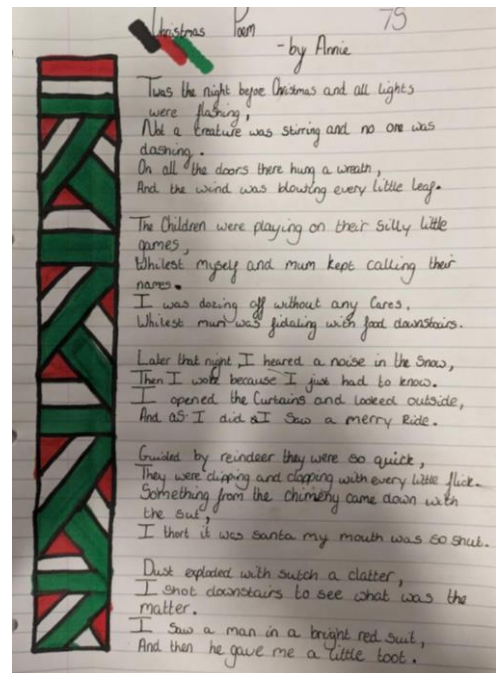 Christmas Poem
7S
-by Annie
Twas the night before Christmas and all lights
were flashing,
Not a creature was stirring and no one was
dashing.
On all the doors there hung a wreath,
And the wind was blowing every little leaf.
The Children were playing on their silly little
games,
Whilest myself and mum kept calling their
names.
I was dozing off without any Cares,
Whilest mum was fidaling with food downstairs.
Later that night, I heared a noise in the snow,
Then I woke because I just had to know.
I opened the Curtains and looked outside,
And as I did I Saw a merry Ride.
Guided by reindeer they were so quick,
They were clipping and clopping with every little flick.
Something from the chimeny came down with
the sut,
I thort it was santa my mouth was so shut.
Dust exploded with sutch a clatter,
I shot downstairs to see what was the
matter.
I saw a man in a bright red suit,
And then he gave me a little toot.